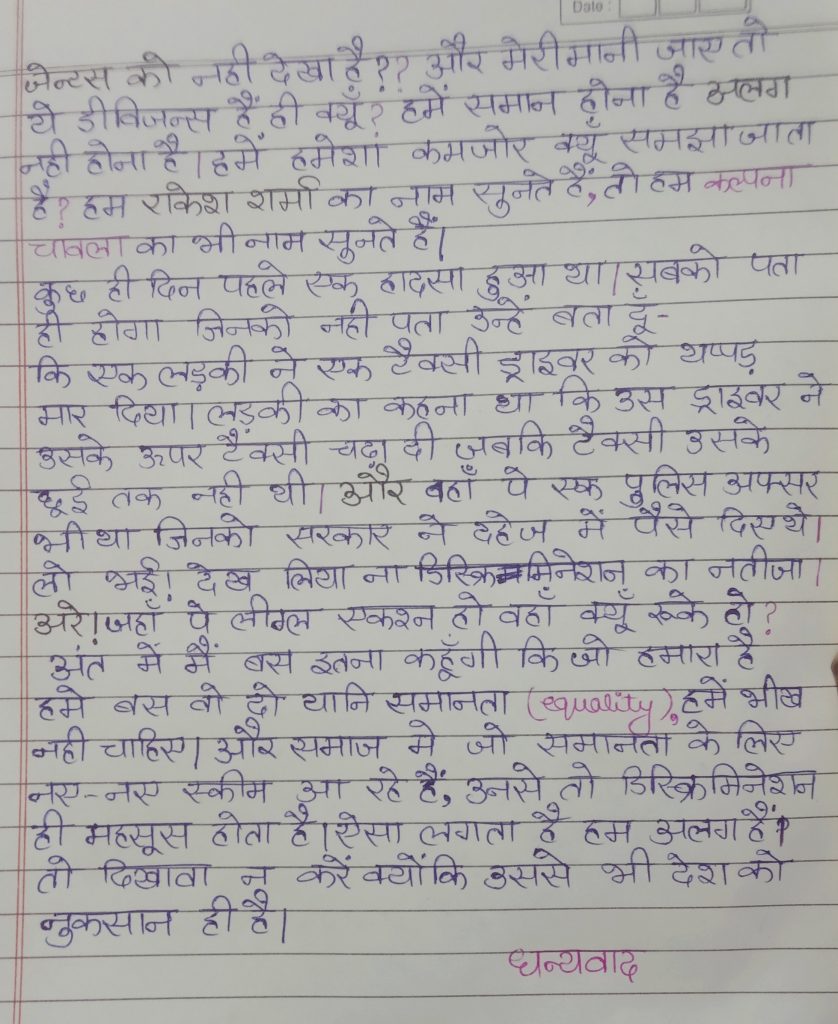 Date :
जेन्टस को नही देखा है?? और मेरी मानी जाए तो
ये डीविजन्स हैं ही क्यूँ? हमें समान होना है अलग
नही होना है। हमें हमेशा कमजोर क्यूँ समझा जाता
है? हम राकेश शर्मा का नाम सुनते हैं, तो हम कल्पना
चावला का भी नाम सुनते हैं।
कुछ ही दिन पहले एक हादसा हुआ था। सबको पता
ही होगा जिनको नही पता उन्हें बता दूँ-
कि एक लड़की ने एक टैक्सी ड्राइवर को थप्पड़
मार दिया। लड़की का कहना था कि उस ड्राइवर ने
उसके ऊपर टैक्सी चढ़ा दी जबकि टैक्सी उसके
छूई तक नही थी। और वहाँ पे एक पुलिस अफ्सर
भी था जिनको सरकार ने दहेज में पैसे दिए थे।
लो भई! देख लिया ना डिस्क्रिमिनेशन का नतीजा।
अरे! जहाँ पे लीगल एकश्न हो वहाँ क्यूँ रूके हो?
अंत में मैं बस इतना कहूँगी कि जो हमारा है
हमे बस वो दो यानि समानता (equality), हमें भीख
नही चाहिए। और समाज मे जो समानता के लिए
नए-नए स्कीम आ रहे हैं, उनसे तो डिस्क्रिमिनेशन
ही महसूस होता है। ऐसा लगता है हम अलग हैं।
तो दिखावा न करें क्योंकि उससे भी देश को
नुकसान ही है।
धन्यवाद